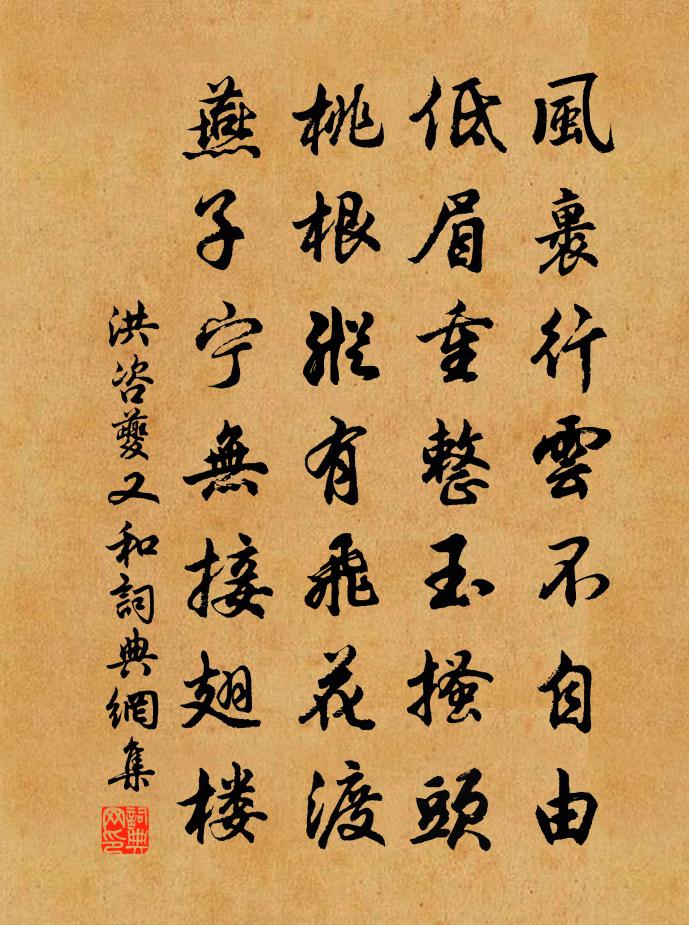 風裏行雲不自由
低眉重整玉搔頭
桃根縱有飛花渡
燕子宁無接翅楼
洪咨夔又和詞典網集
詞典网印